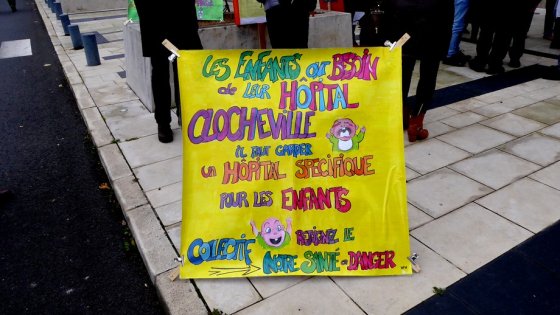 Les Enfants ont BESOIN
de LEUR HÔPITAL
CLOCHEVILLE
il faut garder
un HÔPITAL SPÉCIFIQUE
POUR LES ENFANTS
REJOIGNEZ LE
COLLECTIF NOTRE SANTÉ en DANGER